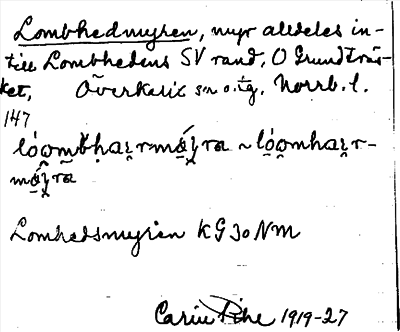 Lombhedmyren, myr alldeles in-
till Lombhedens SV rand, O Grundträs-
ket, Överkalix sn o. tg. Norrb. l.
147
Lomhedsmyren KG 30 NM
Carin Pihe 1919-27